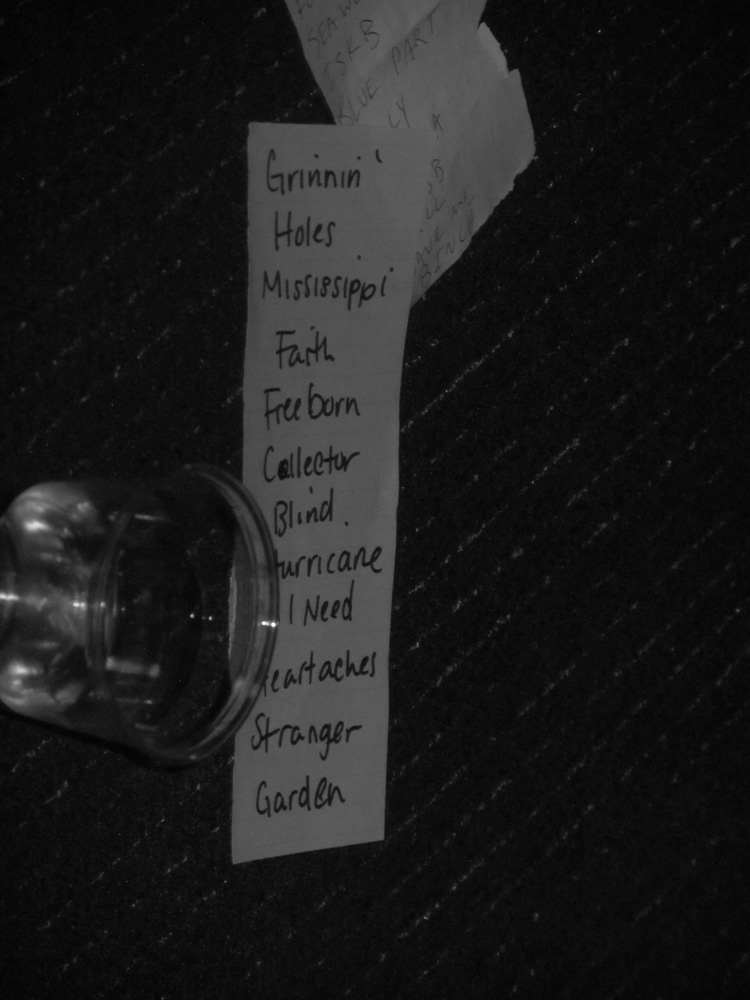 SEAW
ISKB
BLUE PART
LY
Grinnin'
Holes
Mississippi
Faith
Freeborn
Collector
Blind.
urricane
I Need
eartaches
Stranger
Garden